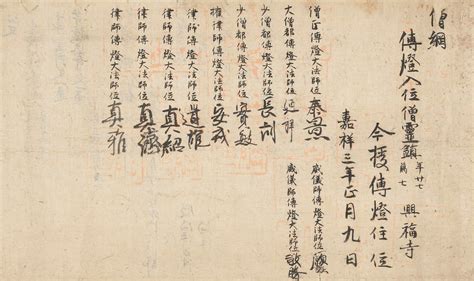 僧綱
傳燈入位僧靈顗年廿七 﨟七 興福寺
今授傳燈住位
嘉祥三年正月九日
僧正傳燈大法師位 威儀師傳燈大法師位
大僧都傳燈大法師位延祥
少僧都傳燈大法師位長訓 威儀師傳燈大法師位
少僧都傳燈大法師位實敏
權律師傳燈大法師位
律師傳燈大法師位道雄
律師傳燈大法師位真紹
律師傳燈大法師位真
律師傳燈大法師位真雅